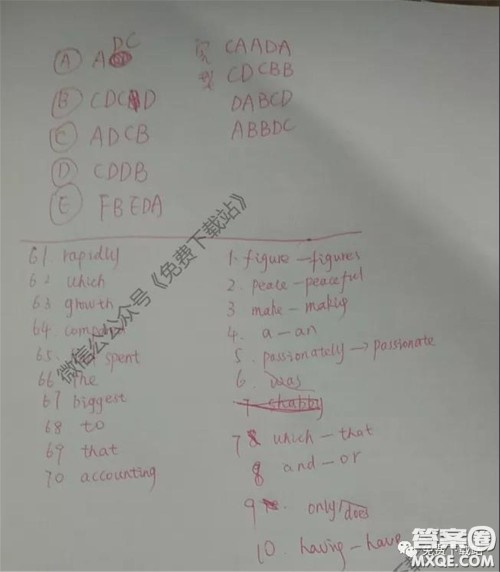 A A DC
B CDC D
C ADCB
D CDDB
E FBEDA
完 CAADA
CDCBB
DABCD
ABBDC
61. rapidly
62 which
63 growth
64.
65. spent
66 the
67 biggest
68 to
69 that
70 accounting
1. figure – figures
2. peace – peaceful
3 make – making
4. a – an
5. passionately → passionate
6. was
7 shabby
7 which – that
8 and – or
9 only/does
10. having – have
微信公众号《免费下载站》
免费下载站
答案圈
MXQE.COM